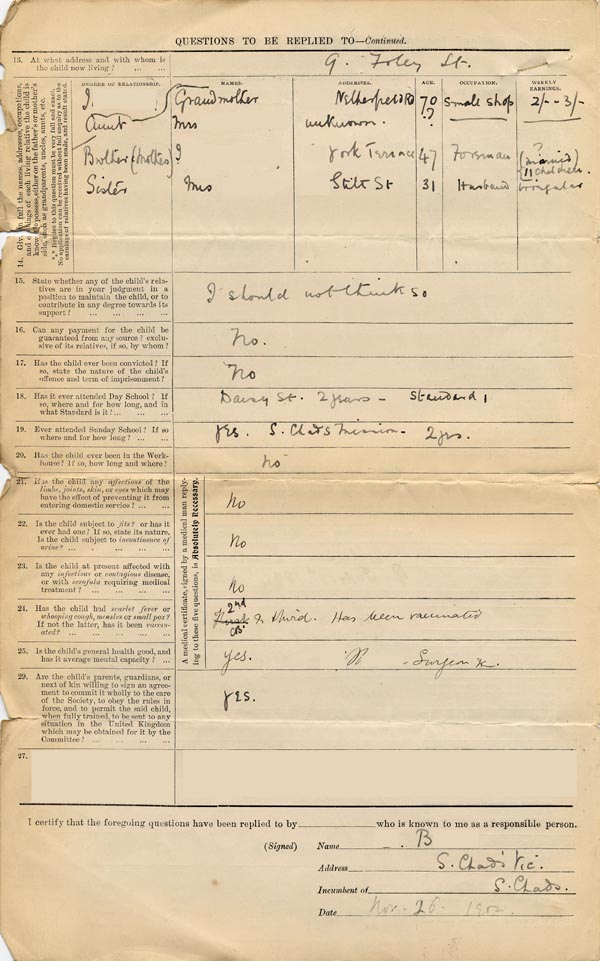 QUESTIONS TO BE REPLIED TO—Continued.
13. At what address and with whom is
the child now living? ... ...
9. Foley St.
14. Give in full the names, addresses, occupations,
and earnings of each living relative the child is
known to possess, either on the father's or mother's
side, such as grandparents, uncles, aunts, etc.
*** Replies to this question must be very full and exact.
No application can be received without full enquiry as to the
earnings of relatives having been made, and result stated.
DEGREE OF RELATIONSHIP. NAMES. ADDRESSES. AGE. OCCUPATION. WEEKLY EARNINGS.
Grandmother Netherfield Rd 70 Small shop 2/- - 3/-
Aunt Mrs unknown. ? ?
Brother (Mother's) J York Terrace 47 Foreman (married) 11 children.
Sister Mrs Stilt St 31 Husband irregular
15. State whether any of the child's rela-
tives are in your judgment in a
position to maintain the child, or to
contribute in any degree towards its
support? ... ... ... ...
I should not think so
16. Can any payment for the child be
guaranteed from any source? exclu-
sive of its relatives, if so, by whom?
No.
17. Has the child ever been convicted? If
so, state the nature of the child's
offence and term of imprisonment?
No
18. Has it ever attended Day School? If
so, where and for how long, and in
what Standard is it? ... ... ...
Daisy St. 2 years - Standard 1
19. Ever attended Sunday School? If so
where and for how long? ... ...
Yes. S. Chad's Mission. 2 yrs.
20. Has the child ever been in the Work-
house? If so, how long and where?
No
A medical certificate, signed by a medical man reply-
ing to these five questions, is Absolutely Necessary.
21. Has the child any affections of the
limbs, joints, skin, or eyes which may
have the effect of preventing it from
entering domestic service? ... ...
No
22. Is the child subject to fits? or has it
ever had one? If so, state its nature.
Is the child subject to incontinence of
urine? ... ... ... ...
No
23. Is the child at present affected with
any infectious or contagious disease,
or with scrofula requiring medical
treatment? ... ... ... ...
No
24. Has the child had scarlet fever or
whooping cough, measles or small pox?
If not the latter, has it been vaccin-
ated? ... ... ... ...
2nd
& third. Has been vaccinated
25. Is the child's general health good, and
has it average mental capacity? ...
Yes. Surgeon &c.
29. Are the child's parents, guardians, or
next of kin willing to sign an agree-
ment to commit it wholly to the care
of the Society, to obey the rules in
force, and to permit the said child,
when fully trained, to be sent to any
situation in the United Kingdom
which may be obtained for it by the
Committee? ... ... ... ...
Yes.
27.
I certify that the foregoing questions have been replied to by who is known to me as a responsible person.
(Signed) Name B
Address S. Chad's Vic.
Incumbent of S. Chads.
Date Nov. 26. 1902.